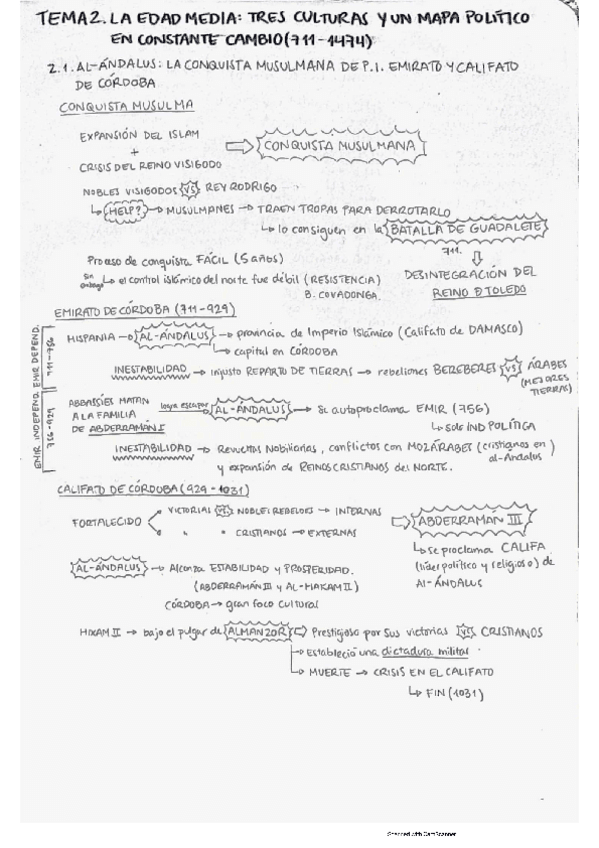 TEMA 2. LA EDAD MEDIA: TRES CULTURAS Y UN MAPA POLÍTICO
EN CONSTANTE CAMBIO (711-1474)
2.1. AL-ÁNDALUS: LA CONQUISTA MUSULMANA DE P.I. EMIRATO Y CALIFATO
DE CÓRDOBA
CONQUISTA MUSULMA
EXPANSIÓN DEL ISLAM
+
CRISIS DEL REINO VISIGODO
⇨ CONQUISTA MUSULMANA
NOBLES VISIGODOS VS REY RODRIGO
↳ HELP? → MUSULMANES → TRAEN TROPAS PARA DERROTARLO
↳ lo consiguen en la BATALLA DE GUADALETE
711.
Proceso de conquista FÁCIL (5 años)
sin embargo ↳ el control islámico del norte fue débil (RESISTENCIA)
B. COVADONGA.
DESINTEGRACIÓN DEL
REINO D TOLEDO
EMIRATO DE CÓRDOBA (711-929)
EMIR DEPEND.
711-756
HISPANIA → AL-ÁNDALUS → provincia de Imperio Islámico (Califato de DAMASCO)
↳ capital en CÓRDOBA
INESTABILIDAD → injusto REPARTO DE TIERRAS → rebeliones BEREBERES VS ÁRABES
(MEJORES
TIERRAS)
EMIR INDEPEND.
756-929
ABBASÍES MATAN
A LA FAMILIA
DE ABDERRAMÁN I
logra escapar AL-ÁNDALUS → Se autoproclama EMIR (756)
↳ solo IND POLÍTICA
INESTABILIDAD → Revueltas Nobiliarias, conflictos con MOZÁRABES (cristianos en
al-Andalus)
y expansión de REINOS CRISTIANOS del NORTE.
CALIFATO DE CÓRDOBA (929-1031)
FORTALECIDO
VICTORIAS VS NOBLES REBELDES → INTERNAS
" " CRISTIANOS → EXTERNAS
⇨ ABDERRAMÁN III
↳ se proclama CALIFA
(líder político y religioso) de
Al-ÁNDALUS
AL-ÁNDALUS → Alcanza ESTABILIDAD y PROSPERIDAD.
(ABDERRAMÁN III y AL-HAKAM II)
CÓRDOBA → gran foco cultural
HIXAM II → bajo el pulgar de ALMANZOR ⇨ Prestigioso por sus victorias VS CRISTIANOS
↳ Estableció una dictadura militar
↳ MUERTE → CRISIS EN EL CALIFATO
↳ FIN (1031)
Scanned with CamScanner